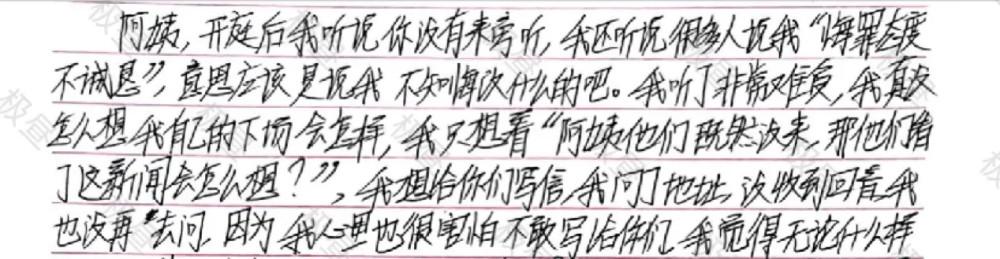 阿姨,开庭后我听说你没有来旁听,我还听说很多人说我“悔罪态度
不诚恳”,意思应该是说我不知悔改什么的吧。我听了非常难受,我真没
怎么想我自己的下场会怎样,我只想着“阿姨他们既然没来,那他们看
了这新闻会怎么想?”,我想给你们写信,我问了地址,没收到回音,我
也没再去问,因为我心里也很害怕不敢写给你们,我觉得无论什么样
极昼